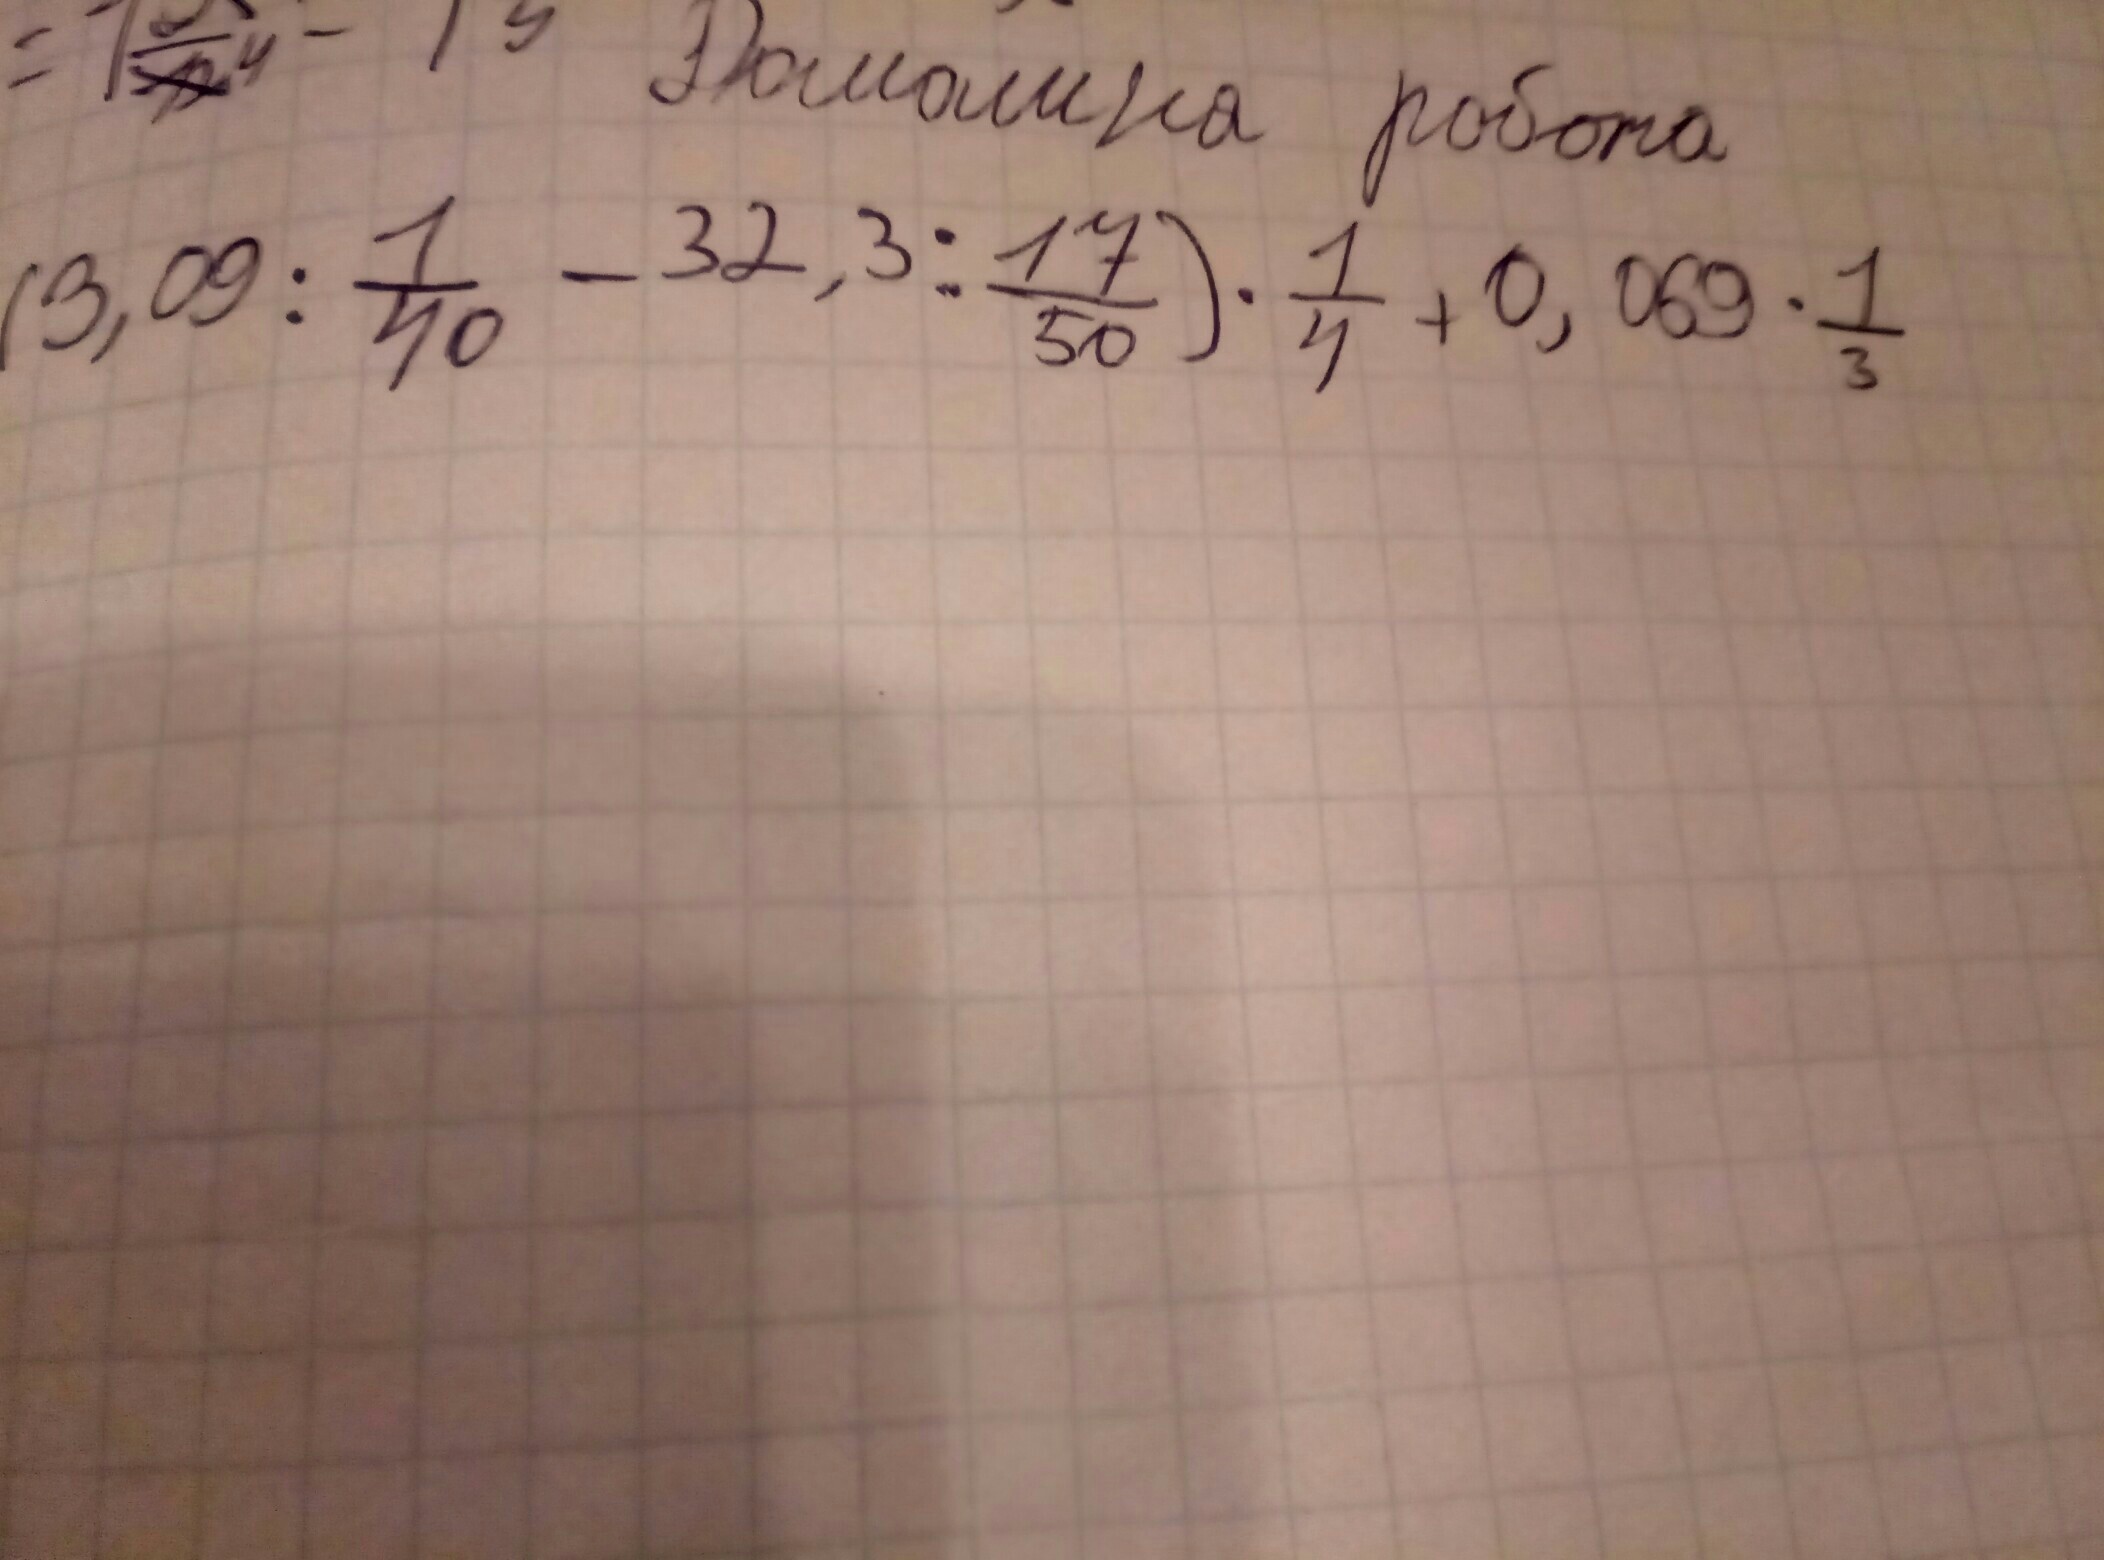 Домашня робота
(3,09 : 1/40 - 32,3 : 17/50) · 1/4 + 0,069 · 1/3